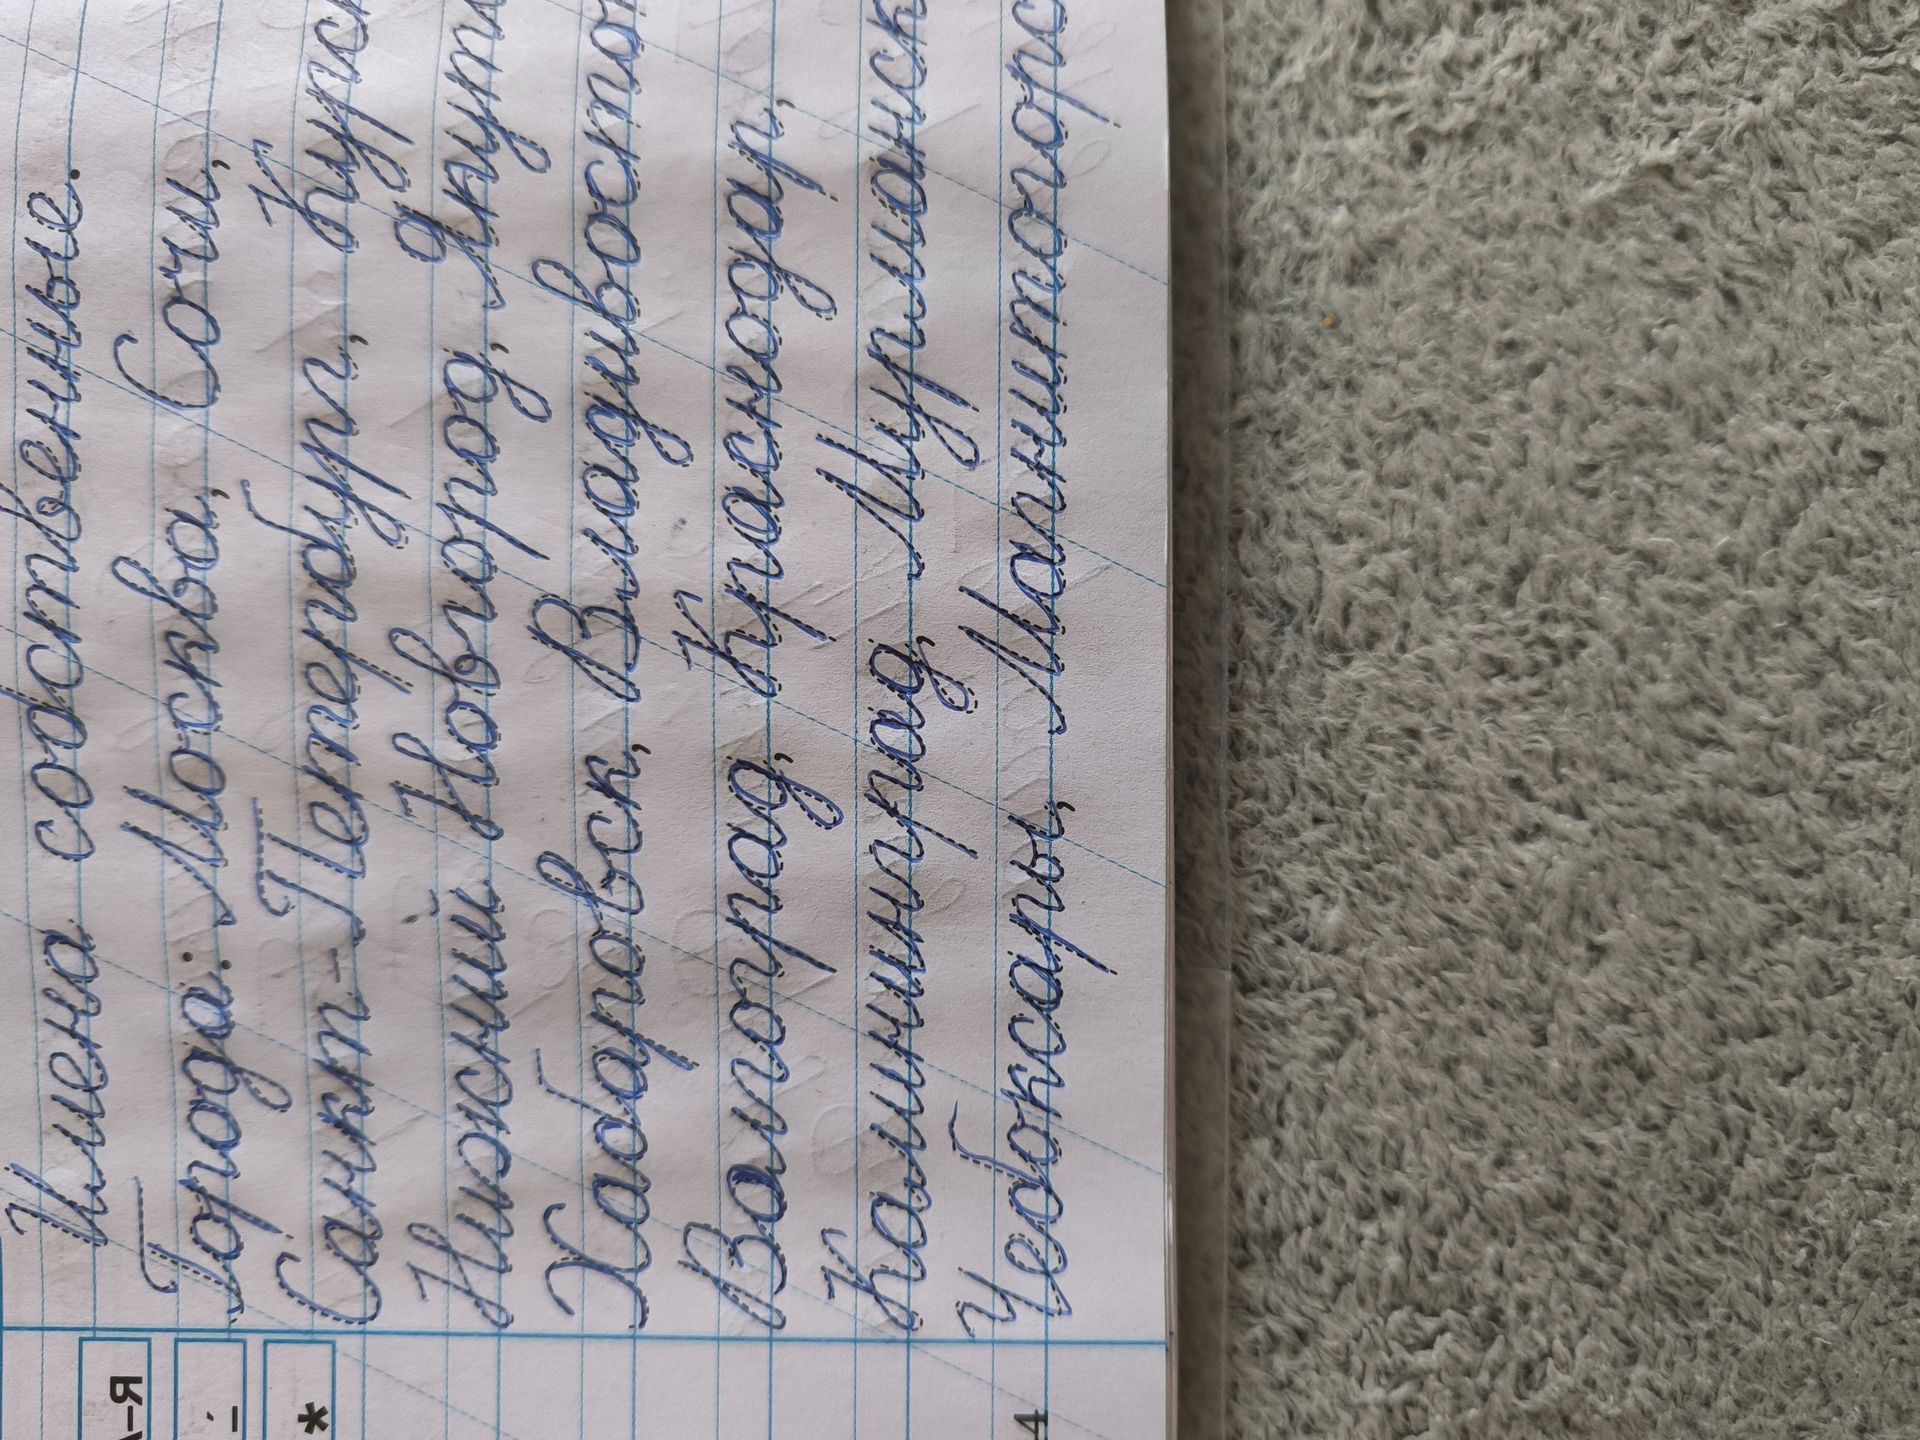 Имена собственные.
Города: Москва, Сочи,
Санкт-Петербург, Курск
Нижний Новгород, Якут
Хабаровск, Владивосток
Волгоград, Краснодар,
Калининград, Мурманск
Чебоксары, Магнитогорс
А-Я
*
4